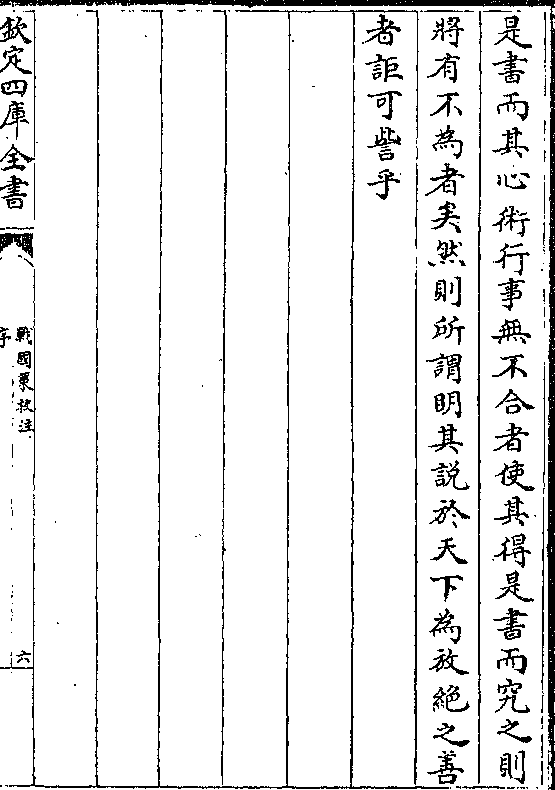 是書而其心術行事無不合者使其得是書而究之則
將有不為者矣然則所謂明其説於天下為放絶之善
者詎可訾乎
欽定四庫全書
戰國策校注
序
六